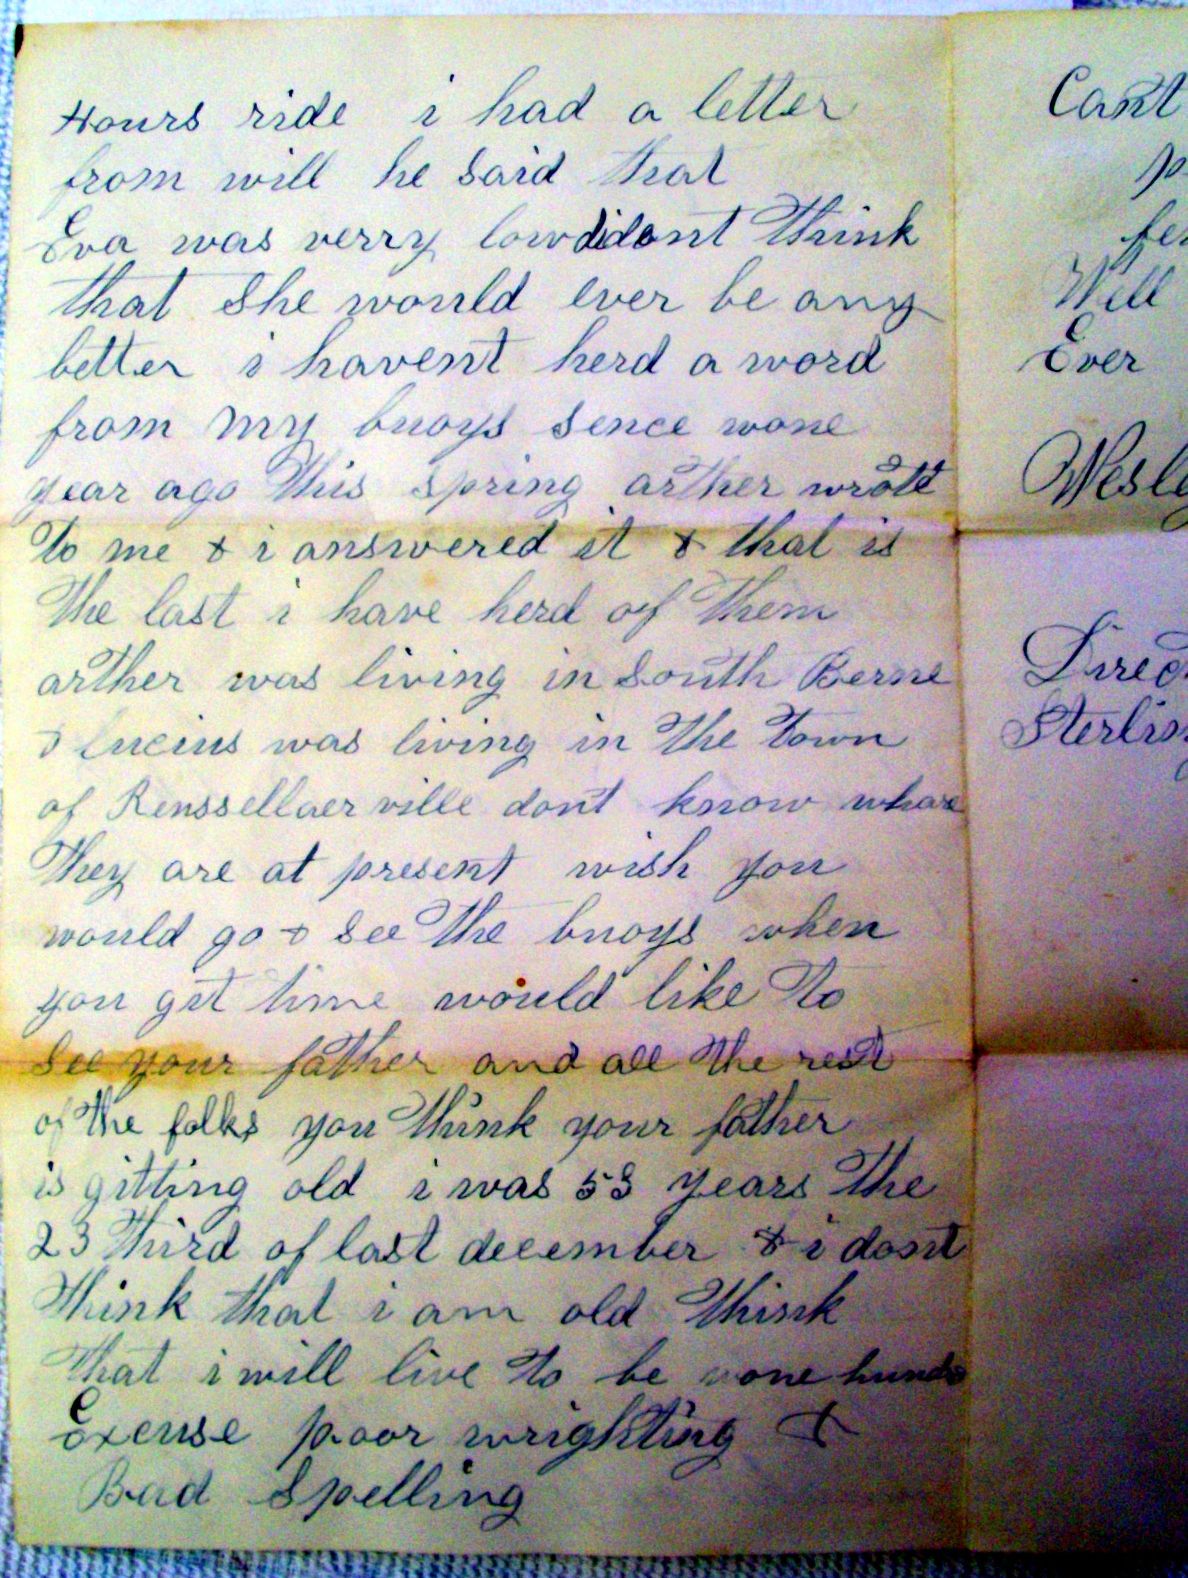 Hours ride i had a letter
from will he said that
Eva was verry low didont think
that She would ever be any
better i havent herd a word
from my buoys sence wone
year ago this spring arther wrote
to me & i answered it & that is
the last i have herd of them
arther was living in South Berne
& lucius was living in the town
of Renssellaerville dont know whare
they are at present wish you
would go & see the buoys when
you git time would like to
see your father and all the rest
of the folks you think your father
is gitting old i was 53 years the
23 third of last december & i dont
think that i am old think
that i will live to be wone
Excuse poor wrighting &
Bad Spelling
Cant
Will
Ever